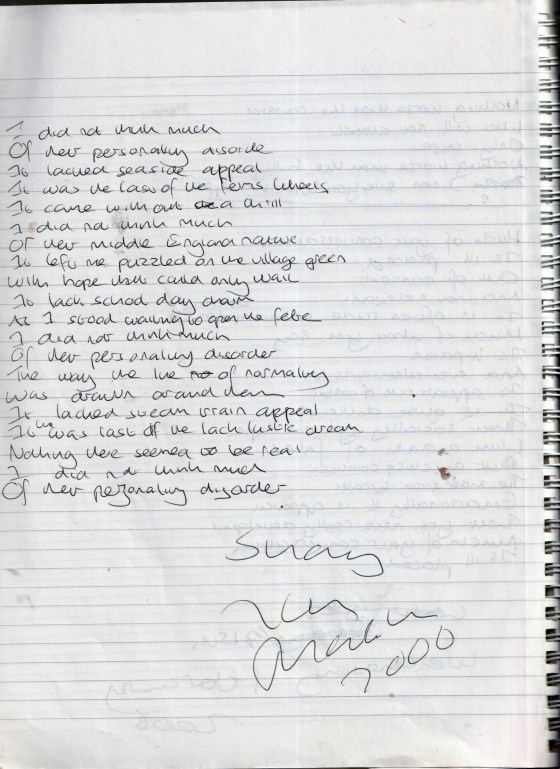 I did not think much
Of her personality disorde
It lacked seaside appeal
It was the last of the ferris wheels
It came without a thrill
I did not think much
Of her middle England nature
It left me puzzled on the village green
With hope that could only wait
It lack school day charm
As I stood waiting to open the fete
I did not think much
Of her personality disorder
The way the line of normality
Was drawn around them
It lacked steam train appeal
It was the last of the lack lustre dream
Nothing here seemed to be real
I did not think much
Of her personality disorder
Sunday
July
2000